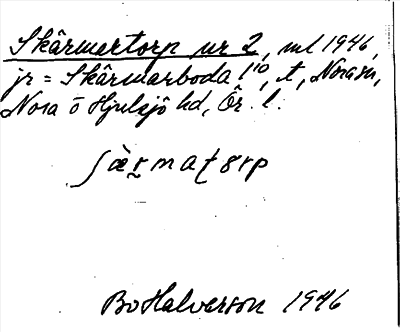 Skärmartorp nr 2, ml 1946,
jr = Skärmarboda 1/10, t, Nora sn,
Nora o Hjulsjö hd, Ör. l.
ʃæ̀r̥matɵrp
Bo Halvarson 1946